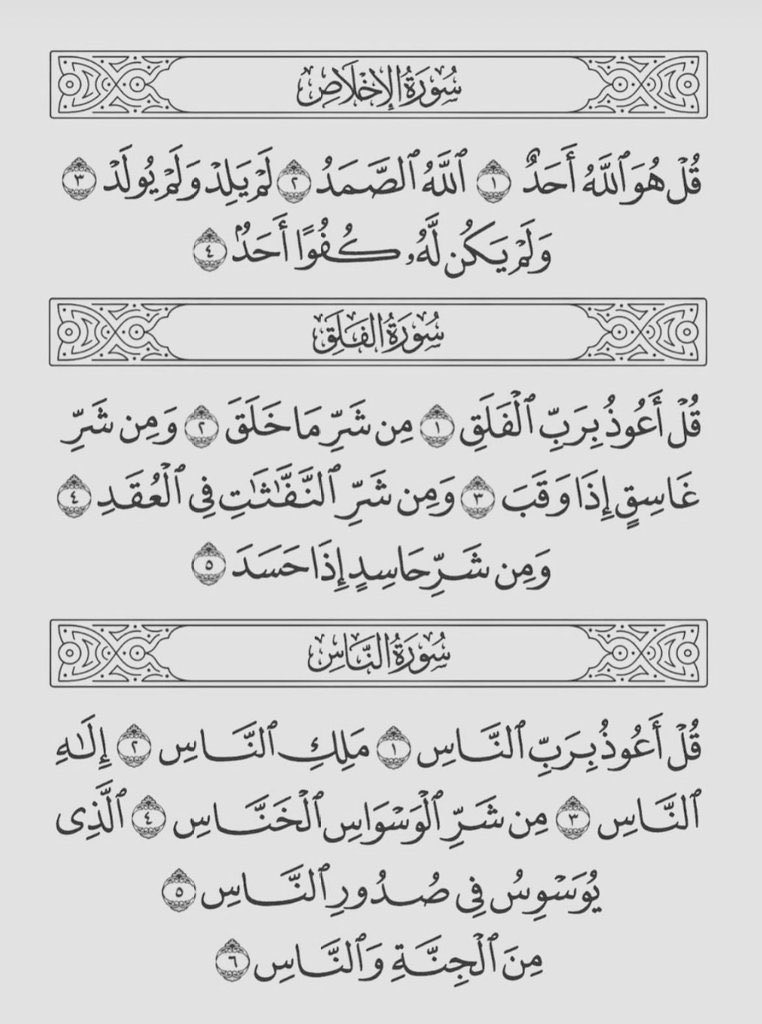 سُورَةُ الإِخْلَاصِ
قُلْ هُوَ ٱللَّهُ أَحَدٌ ١ ٱللَّهُ ٱلصَّمَدُ ٢ لَمْ يَلِدْ وَلَمْ يُولَدْ ٣
وَلَمْ يَكُن لَّهُۥ كُفُوًا أَحَدٌۢ ٤
سُورَةُ الفَلَقِ
قُلْ أَعُوذُ بِرَبِّ ٱلْفَلَقِ ١ مِن شَرِّ مَا خَلَقَ ٢ وَمِن شَرِّ
غَاسِقٍ إِذَا وَقَبَ ٣ وَمِن شَرِّ ٱلنَّفَّٰثَٰتِ فِي ٱلْعُقَدِ ٤
وَمِن شَرِّ حَاسِدٍ إِذَا حَسَدَ ٥
سُورَةُ النَّاسِ
قُلْ أَعُوذُ بِرَبِّ ٱلنَّاسِ ١ مَلِكِ ٱلنَّاسِ ٢ إِلَٰهِ
ٱلنَّاسِ ٣ مِن شَرِّ ٱلْوَسْوَاسِ ٱلْخَنَّاسِ ٤ ٱلَّذِى
يُوَسْوِسُ فِى صُدُورِ ٱلنَّاسِ ٥
مِنَ ٱلْجِنَّةِ وَٱلنَّاسِ ٦